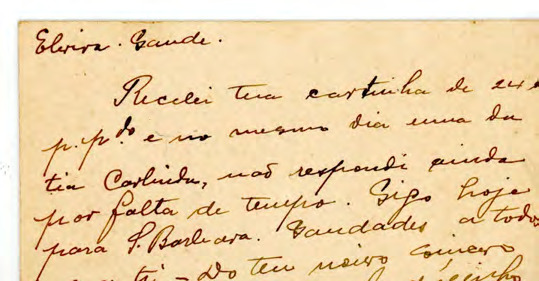 Elvira. Saude.
Recebi tua cartinha de 24 d
p.pdo. e no mesmo dia uma da
tia Carlinda, não respondi ainda
por falta de tempo. Sigo hoje
para S. Barbara. Saudades a todos
Do teu noivo sincero